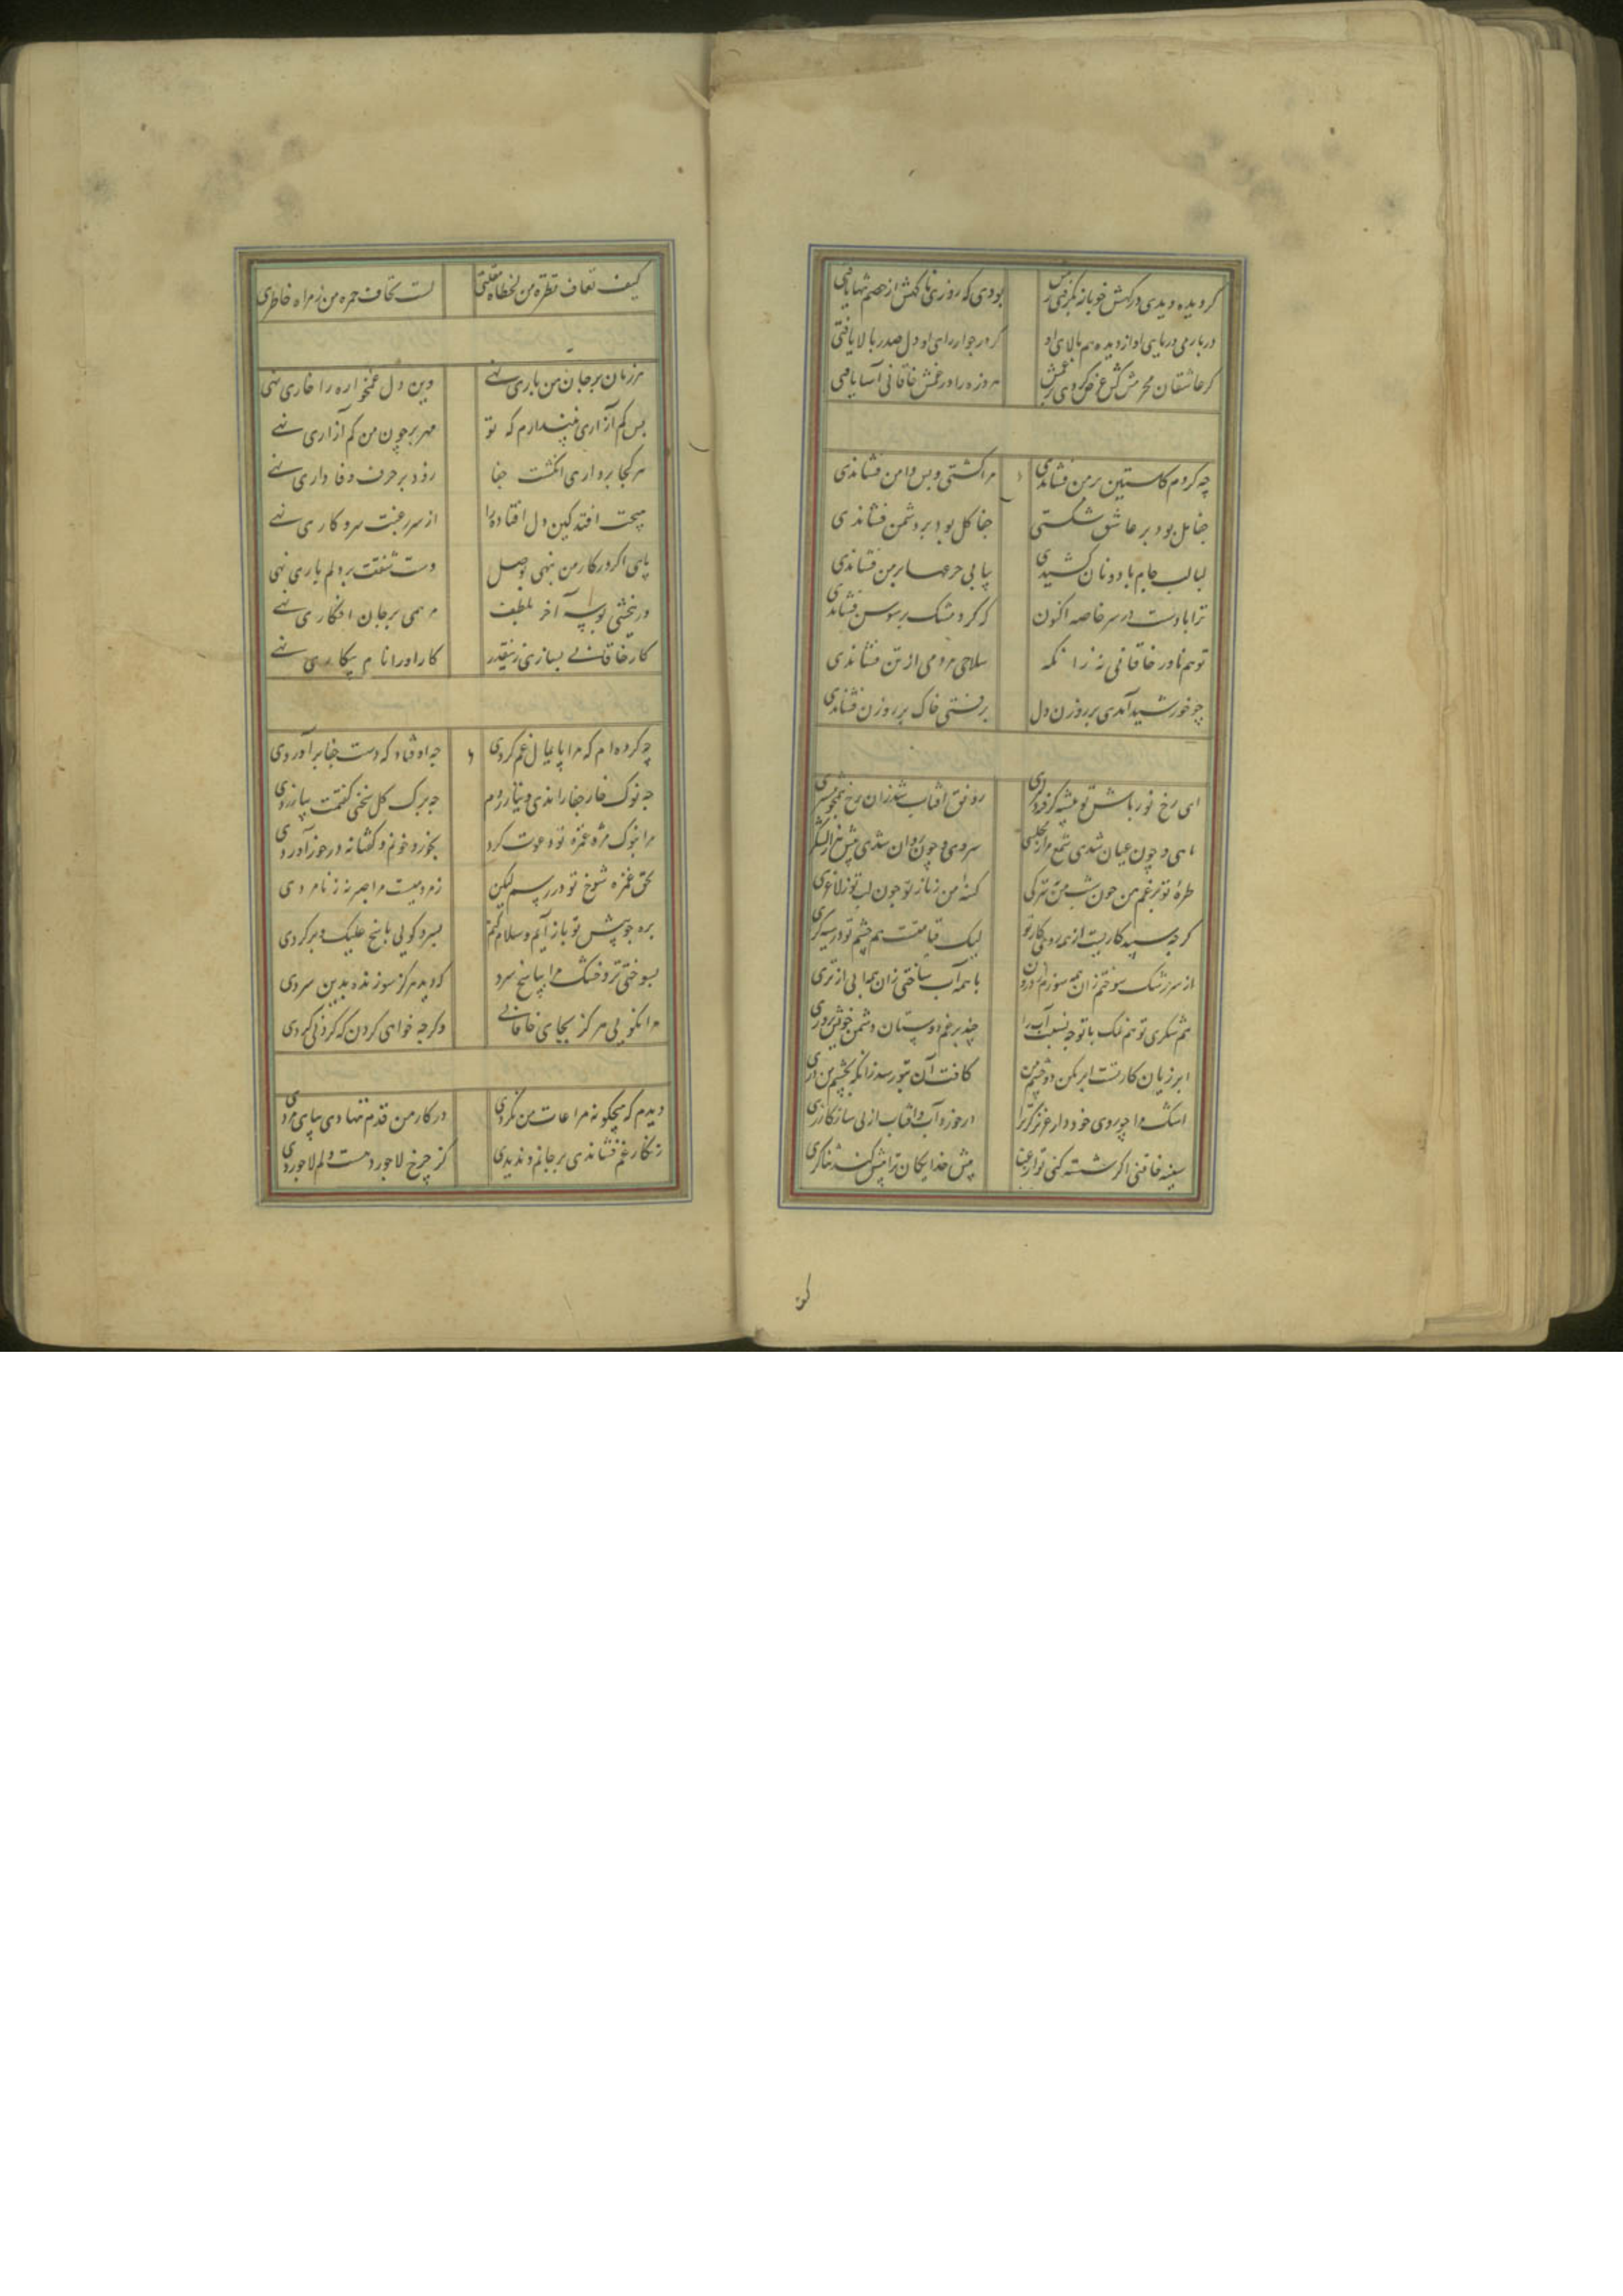 کر دیده دیدی درکهش خوباز نکرفتی رهش بودی که روزی ناکهش از خصم تنها یافتی
دربار می دربای او از دیده هم بالای او کر در جوار رای او دل صدر بالا یافتی
کر عاشقان محرمش کس عرض کردی بر غمش هر وزه را در غمش خاقانی آسا یافتی
چه کردم کاستین بر من فشاندی مرا کشتی و پس دامن فشاندی
جفا پل بود بر عاشق شکستی جفا کل بود بر دشمن فشاندی
لبالب جام با دونان کشیدی پیاپی جرعها بر من فشاندی
ترا بادست در سر خاصه اکنون که کرد مشک بر سوسن فشاندی
تو هم ناور خاقانی نه زانکه سلاح مردمی از تن فشاندی
چو خورشید آمدی بر روزن دل برفتی خاک بر روزن فشاندی
ای رخ نورپاش تو پیشه کرفته دلبری رونق افتاب شد زان رخ همچو مشتری
ماهی و چون عیان شدی شمع هزار مجلسی سروی و چون روان شدی پیش هزار لشکر
طره تو بر غم من چون شب من بتیرکی کیسه من ز ناز تو چون لب تو ز لاغری
کرچه سپیدکاریست از همه روی کار تو لیک قیامتست هم چشم تو در سیه کری
از سر رشک سوختم زان همه سوزم درون با همه آب ساختی زان همه آبی از تری
هم شکری تو هم نمک با تو چه نسبت آب را چند بر غم دوستان دشمن خویش پروری
ابر زیان کارتست ابر مکن دو چشم من کافت آن بتو رسد زانکه بچشم من دری
اشک مرا چو روی خود دار عزیز کز ترا ار خورد آب و افتاب از پی ساز کازری
سینه خاقنی اکر شسته کنی تو از عنا پیش خدایکان ترا پیش کند ثناکری
کیف
کیف تعاف قطرة من لخطاه مقلتی لست تخاف جمرة من زفراه خاطری
هر زمان بر جان من باری نهی وین دل غمخواره را خاری نهی
بس کم آزاری نپندارم که تو مهر بر چون من کم آزاری نهی
هر کجا برداری انکشت جفا زود بر حرف وفاداری نهی
هیچت افتد کین دل افتاده را از سر رغبت سر و کاری نهی
پای اکر در کار من ننهی بوصل دست شفقت بر دلم باری نهی
ور بخشی بوسه آخر بلطف مرهمی بر جان افکاری نهی
کار خاقانی بسازی زینقدر کار او را نام بیکاری نهی
چه کرده‌ام که مرا پایمال غم کردی چه اوفتاد که دست جفا برآوردی
چه نوک خار جفا راندی و نیازردم چه برک کل سخنی کفتمت بیازردی
مرا بنوک مژه غمزه تو دعوت کرد بخورد خونم و کفتا نه درخور آوردی
بحق غمزه شوخ تو در رسم لیکن ز مردمیست مرا صبر نه ز نامردی
بره چو پیش تو باز آیم و سلام کنم بسرد کویی پاسخ علیک و برکردی
بسوختی تر و خشک مرا بپاسخ سرد که دید هرکز سوزنده بدین سردی
مرا نکویی هرکز بجای خاقانی دکر چه خواهی کردن که کردنی کردی
دیدم که هیچکونه مراعات من نکردی در کار من قدم ننهادی بپای مردی
زنکار غم فشاندی بر جانم و ندیدی کز چرخ لاجورد هست دلم لاجوردی